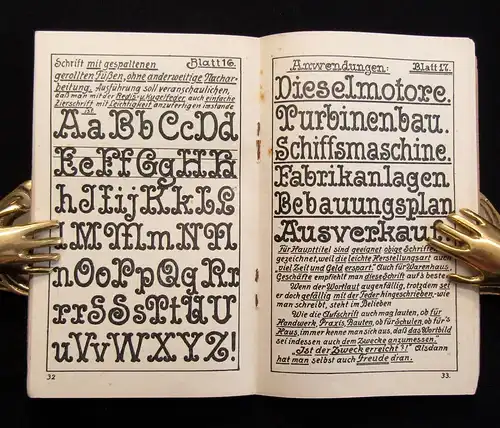 Schrift mit gespaltenen Blatt 16.
gerollten Füßen, ohne anderweitige Nachar-
beitung. Ausführung soll veranschaulichen,
daß man mit der Redis- u. Kugelfeder auch einfache
Zierschrift mit Leichtigkeit anzufertigen imstande
ist.
Aa Bb Cc. Dd
Ee Ff Gg Hh
h I Iij Kk L ł
l M Mm n N N
n Oo Pp Qq Rr
rr S S s s Tt U U
u Vv W X Y Z !
32
Anwendungen: Blatt 17.
Dieselmotore.
Turbinenbau.
Schiffsmaschine.
Fabrikanlagen
Bebauungsplan
Ausverkauf
Für Haupttitel sind geeignet obige Schriften
gezeichnet, weil die leichte Herstellungsart auch
„viel Zeit und Geld erspart.“ Auch für Warenhaus,
Geschäfte empfiehlt man diese Schrift auf's beste.
Wenn der Wortlaut augenfällig, trotzdem sei
er doch gefällig mit der Feder hingeschrieben, wie
man schreibt, steht im Belieben
Wie die Aufschrift auch mag lauten, ob für
Handwerk, Praxis, Bauten, ob für Schulen, ob für's
Haus, immer kenne man sich aus, daß das Wortbild
sei indessen auch dem Zwecke anzumessen.“
„Ist der Zweck erreicht?! Alsdann
hat man selbst auch Freude dran.
33.